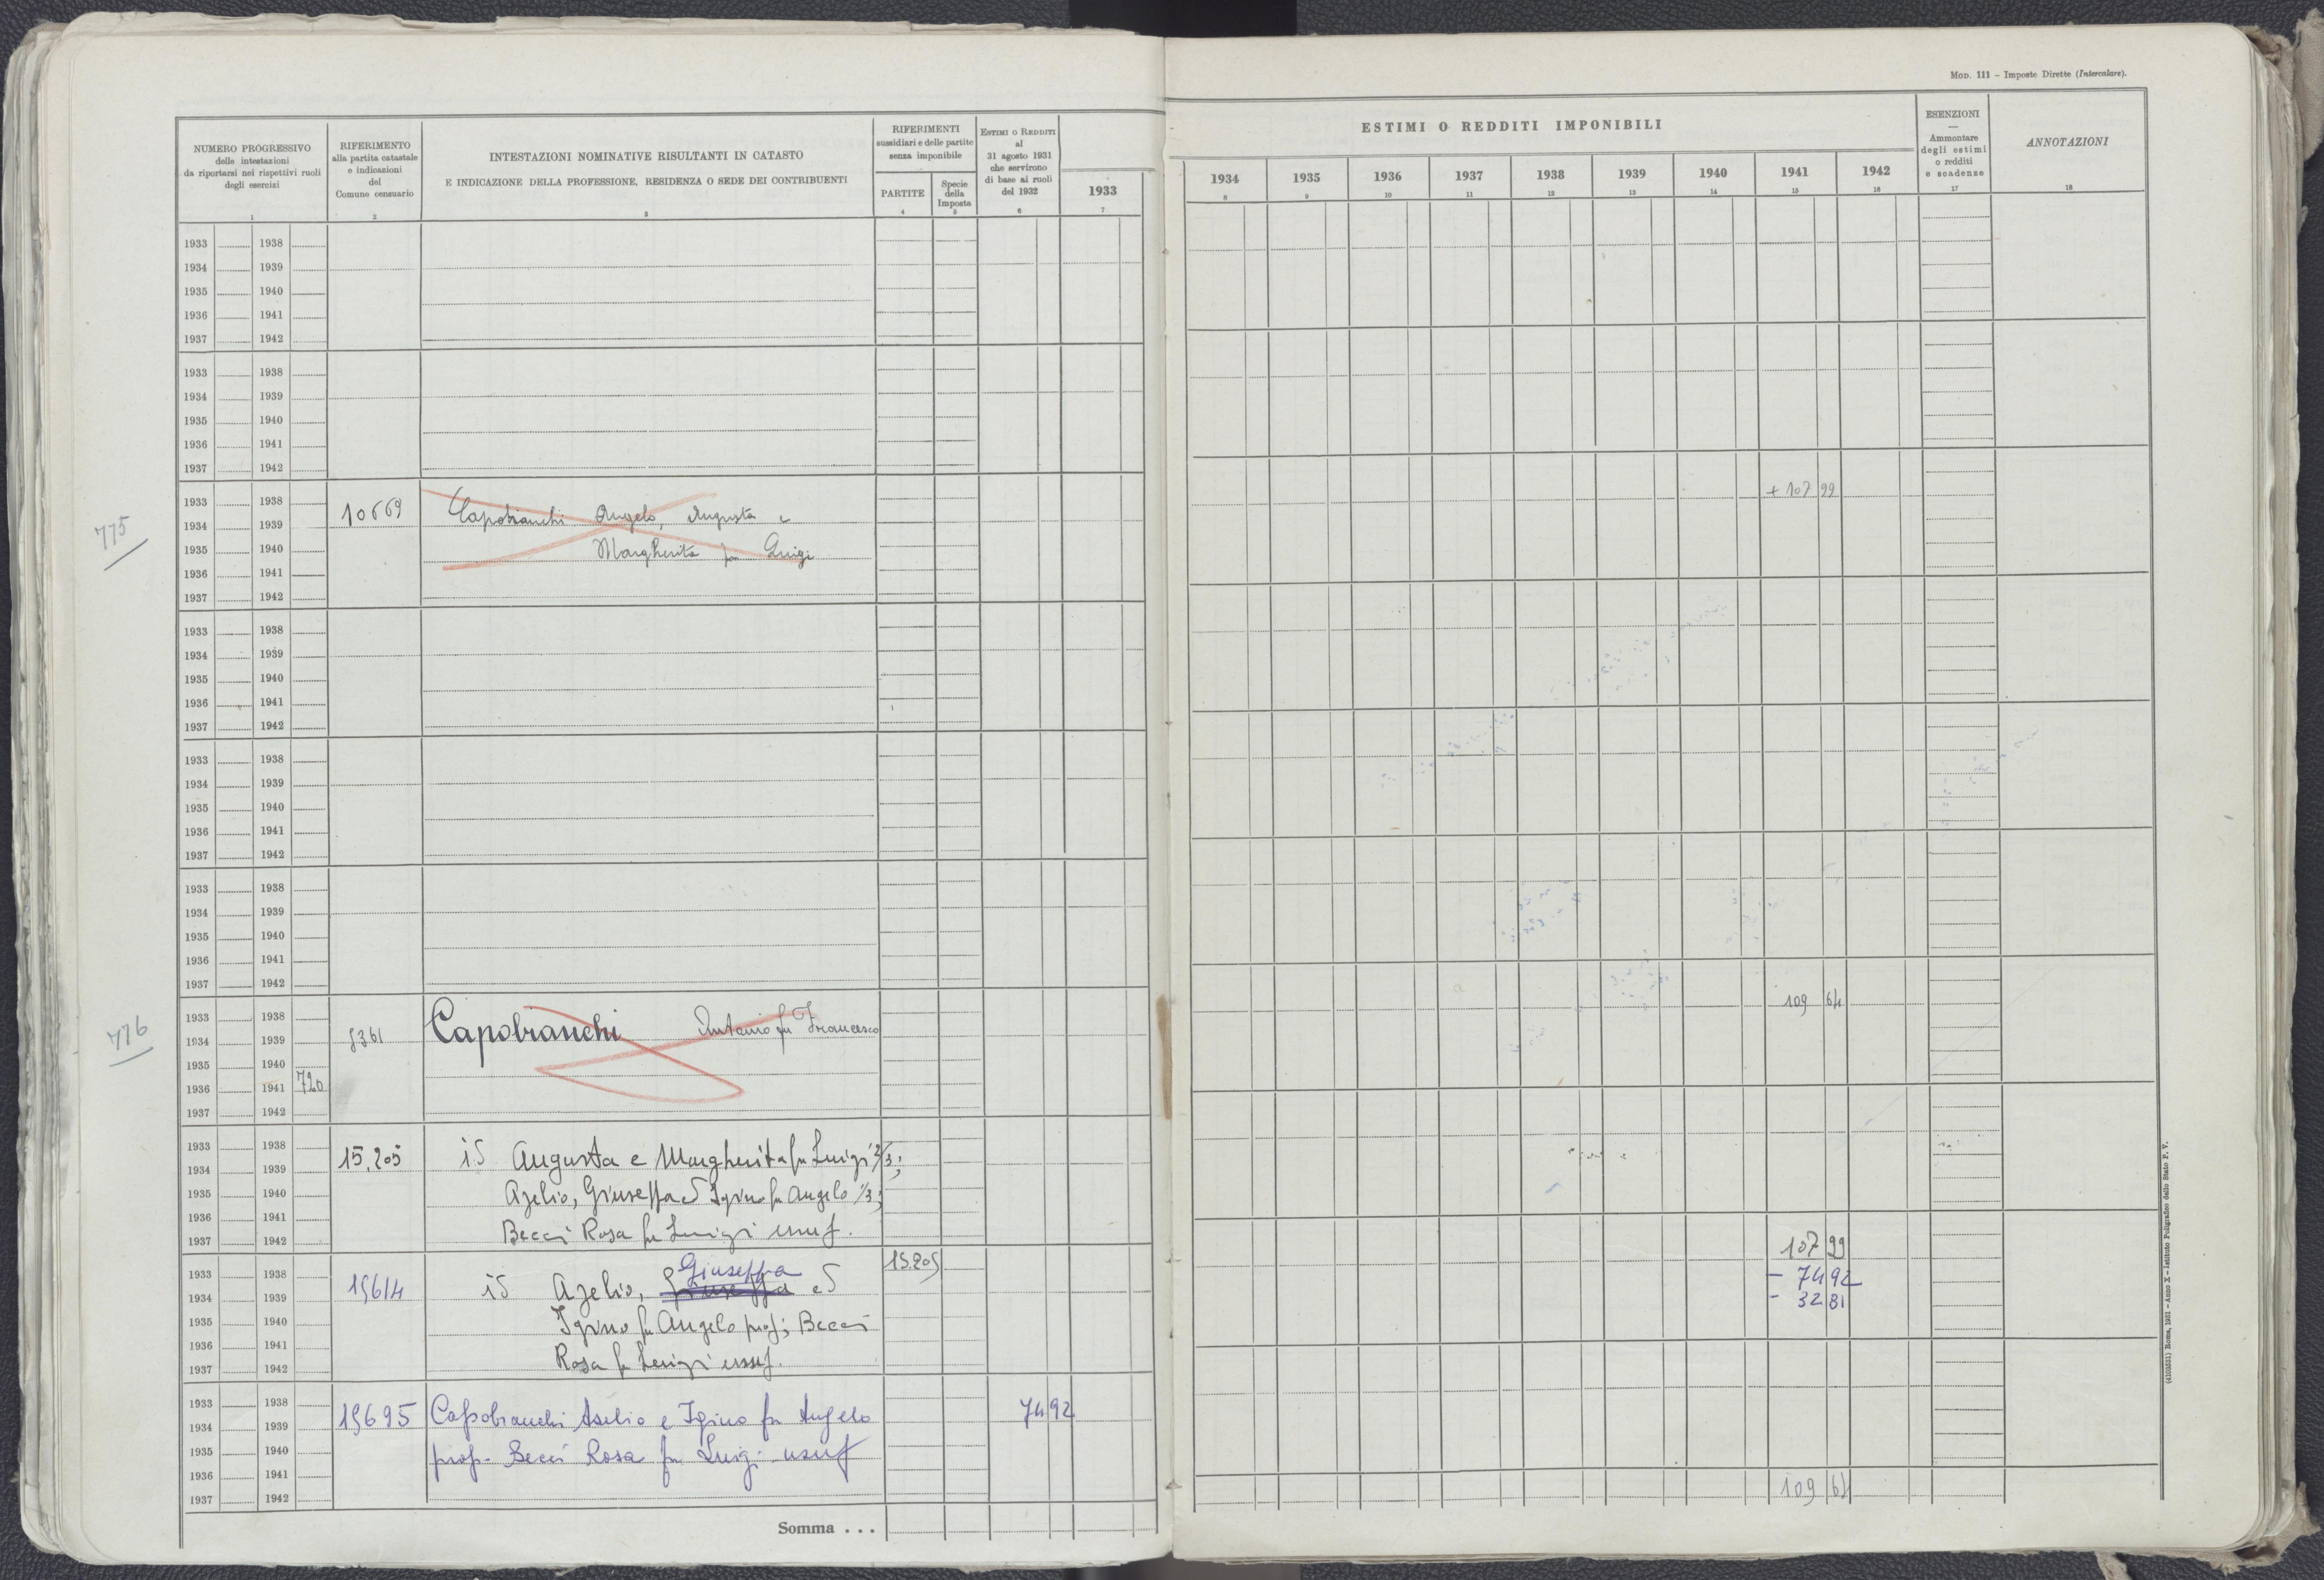 Mod. 111 – Imposte Dirette (Intercalare).
NUMERO PROGRESSIVO
delle intestazioni
da riportarsi nei rispettivi ruoli
degli esercizi
1
RIFERIMENTO
alla partita catastale
e indicazioni
del
Comune censuario
2
INTESTAZIONI NOMINATIVE RISULTANTI IN CATASTO
E INDICAZIONE DELLA PROFESSIONE, RESIDENZA O SEDE DEI CONTRIBUENTI
3
RIFERIMENTI
sussidiari e delle partite
senza imponibile
PARTITE
4
Specie
della
Imposta
5
Estimi o Redditi
al
31 agosto 1931
che servirono
di base ai ruoli
del 1932
6
1933
7
ESTIMI O REDDITI IMPONIBILI
1934 1935 1936 1937 1938 1939 1940 1941 1942
8 9 10 11 12 13 14 15 16
ESENZIONI
—
Ammontare
degli estimi
o redditi
e scadenze
17
ANNOTAZIONI
18
1933 1938
1934 1939
1935 1940
1936 1941
1937 1942
1933 1938
1934 1939
1935 1940
1936 1941
1937 1942
775
1933 1938 10669 Capobianchi Angelo, Augusta e + 107 99
1934 1939
1935 1940 Margherita fu Luigi
1936 1941
1937 1942
1933 1938
1934 1939
1935 1940
1936 1941
1937 1942
1933 1938
1934 1939
1935 1940
1936 1941
1937 1942
1933 1938
1934 1939
1935 1940
1936 1941
1937 1942
776
1933 1938 109 64
1934 1939 8361 Capobianchi Antonio fu Francesco
1935 1940
1936 1941 720
1937 1942
1933 1938 15.205 iS Augusta e Margherita fu Luigi 2/3;
1934 1939
1935 1940 Azelio, Giuseppa eS Igino fu Angelo 1/3;
1936 1941
1937 1942 Becci Rosa fu Luigi usuf.
107 99
1933 1938 15.205
1934 1939 15614 iS Azelio, Giuseppa eS
- 74 92
- 32 81
1935 1940 Igino fu Angelo prop; Becci
1936 1941
1937 1942 Rosa fu Luigi usuf.
1933 1938 15695 Capobianchi Aselio e Igino fu Angelo 74 92
1934 1939
1935 1940 prop- Becci Rosa fu Luigi usuf
1936 1941
1937 1942
109 64
Somma . . .
(4103531) Roma, 1931 – Anno X – Istituto Poligrafico dello Stato P. V.